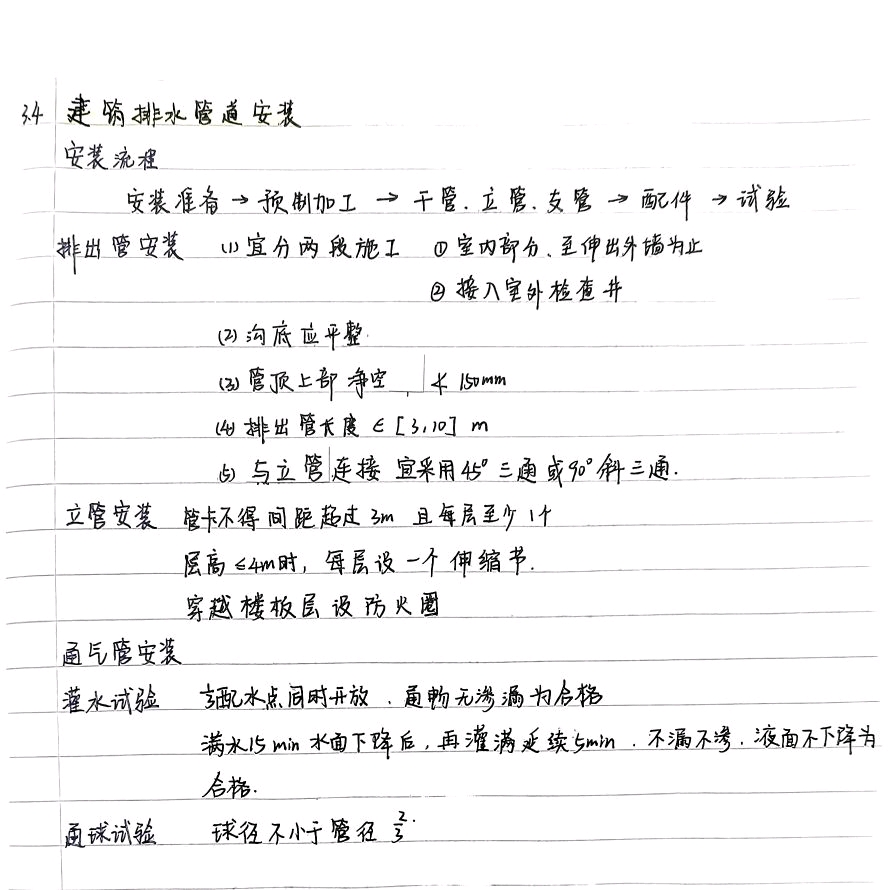 3.4 建筑排水管道安装
安装流程
安装准备→预制加工→干管、立管、支管→配件→试验
排出管安装 (1) 宜分两段施工 ①室内部分、至伸出外墙为止
②接入室外检查井
(2) 沟底应平整.
(3) 管顶上部净空 ≮ 150mm
(4) 排出管长度 ∈ [3,10] m
(5) 与立管连接 宜采用45°三通或90°斜三通.
立管安装 管卡不得间距超过3m 且每层至少1个
层高≤4m时, 每层设一个伸缩节.
穿越楼板层设防火圈
通气管安装
灌水试验 配水点同时开放、通畅无渗漏为合格
满水15min水面下降后,再灌满延续5min、不漏不渗、液面不下降为
合格.
通球试验 球径不小于管径 2/3.